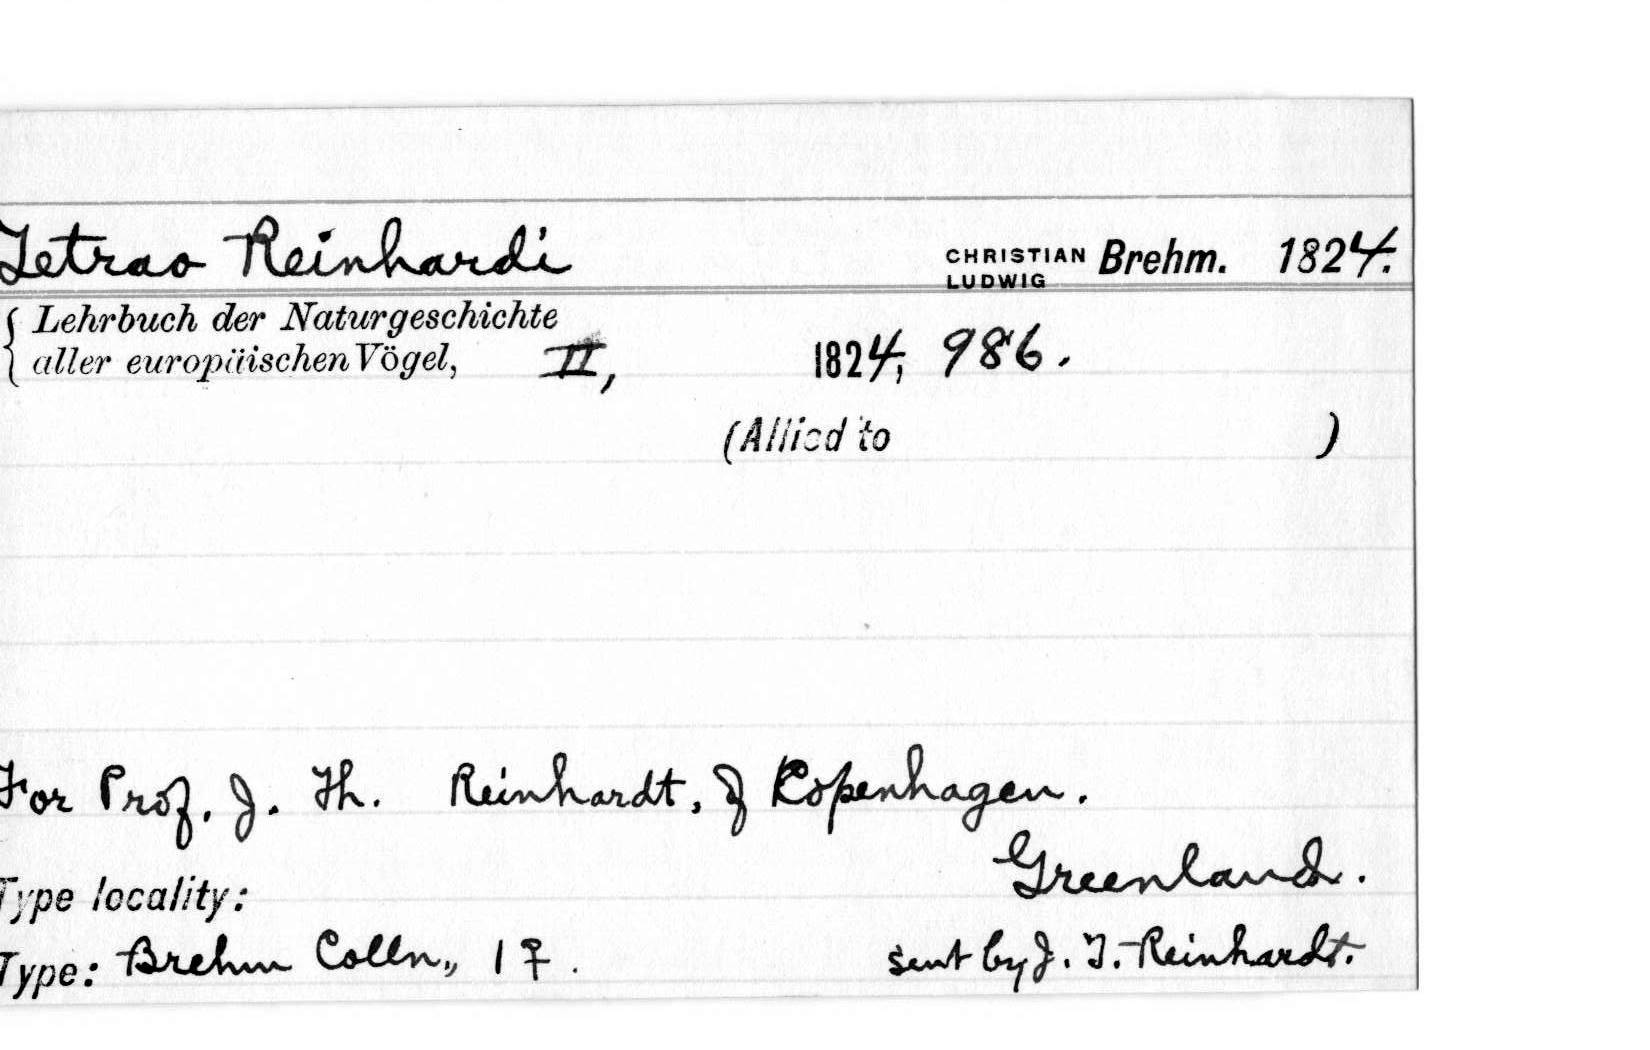 Tetrao Reinhardi CHRISTIAN LUDWIG Brehm. 1824.
Lehrbuch der Naturgeschichte
aller europäischen Vögel, II, 1824, 986.
(Allied to )
For Prof. J. Th. Reinhardt, of Kopenhagen.
Greenland.
Type locality:
Type: Brehm Colln., 1 ♀. sent by J. T. Reinhardt.